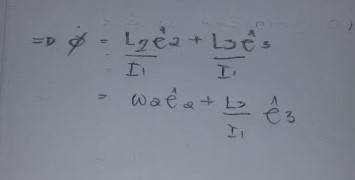 => φ̇ = L₂ê₂/I₁ + L₃ê₃/I₁
= ω₂ê₂ + L₃/I₁ ê₃